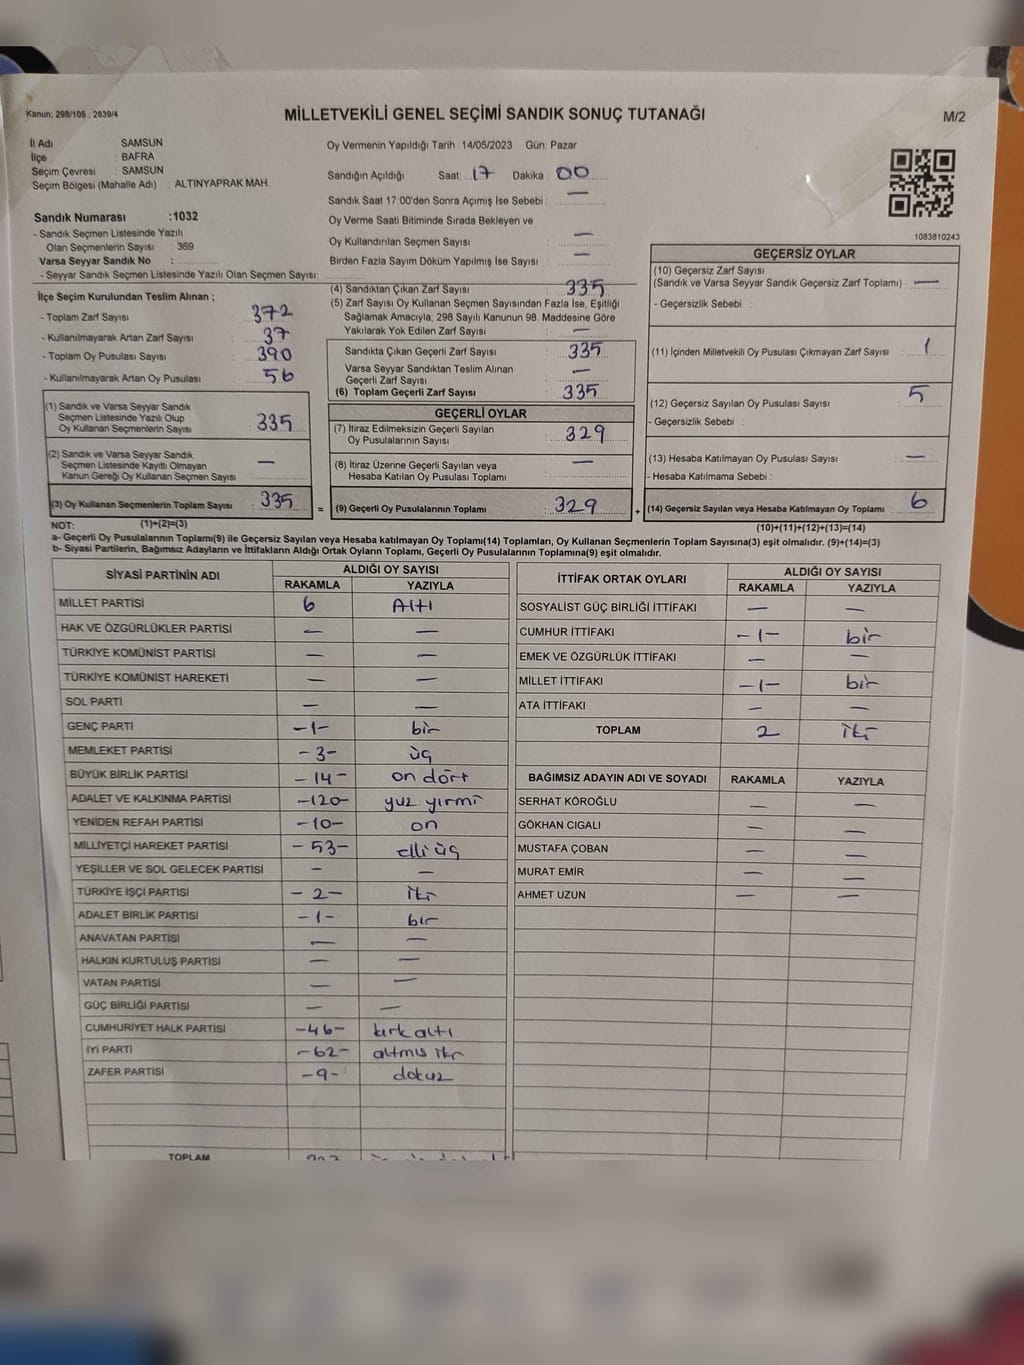 Kanun; 298/105 , 2839/4
MİLLETVEKİLİ GENEL SEÇİMİ SANDIK SONUÇ TUTANAĞI
M/2
İl Adı : SAMSUN
İlçe : BAFRA
Seçim Çevresi : SAMSUN
Seçim Bölgesi (Mahalle Adı) : ALTINYAPRAK MAH.
Oy Vermenin Yapıldığı Tarih : 14/05/2023 Gün: Pazar
Sandığın Açıldığı Saat : 17 Dakika : 00
Sandık Saat 17:00'den Sonra Açımış İse Sebebi : —
Oy Verme Saati Bitiminde Sırada Bekleyen ve
Oy Kullandırılan Seçmen Sayısı : —
Birden Fazla Sayım Döküm Yapılmış İse Sayısı : —
Sandık Numarası :1032
- Sandık Seçmen Listesinde Yazılı
Olan Seçmenlerin Sayısı : 369
Varsa Seyyar Sandık No :
- Seyyar Sandık Seçmen Listesinde Yazılı Olan Seçmen Sayısı:
1083810243
İlçe Seçim Kurulundan Teslim Alınan ;
- Toplam Zarf Sayısı : 372
- Kullanılmayarak Artan Zarf Sayısı : 37
- Toplam Oy Pusulası Sayısı : 390
- Kullanılmayarak Artan Oy Pusulası : 56
(1) Sandık ve Varsa Seyyar Sandık
Seçmen Listesinde Yazılı Olup
Oy Kullanan Seçmenlerin Sayısı : 335
(2) Sandık ve Varsa Seyyar Sandık
Seçmen Listesinde Kayıtlı Olmayan
Kanun Gereği Oy Kullanan Seçmen Sayısı : —
(3) Oy Kullanan Seçmenlerin Toplam Sayısı : 335
(4) Sandıktan Çıkan Zarf Sayısı : 335
(5) Zarf Sayısı Oy Kullanan Seçmen Sayısından Fazla İse, Eşitliği
Sağlamak Amacıyla; 298 Sayılı Kanunun 98. Maddesine Göre
Yakılarak Yok Edilen Zarf Sayısı : —
Sandıkta Çıkan Geçerli Zarf Sayısı : 335
Varsa Seyyar Sandıktan Teslim Alınan
Geçerli Zarf Sayısı : —
(6) Toplam Geçerli Zarf Sayısı : 335
GEÇERLİ OYLAR
(7) İtiraz Edilmeksizin Geçerli Sayılan
Oy Pusulalarının Sayısı : 329
(8) İtiraz Üzerine Geçerli Sayılan veya
Hesaba Katılan Oy Pusulası Toplamı : —
= (9) Geçerli Oy Pusulalarının Toplamı : 329
GEÇERSİZ OYLAR
(10) Geçersiz Zarf Sayısı
(Sandık ve Varsa Seyyar Sandık Geçersiz Zarf Toplamı) : —
- Geçersizlik Sebebi :
(11) İçinden Milletvekili Oy Pusulası Çıkmayan Zarf Sayısı : 1
(12) Geçersiz Sayılan Oy Pusulası Sayısı : 5
- Geçersizlik Sebebi :
(13) Hesaba Katılmayan Oy Pusulası Sayısı : —
- Hesaba Katılmama Sebebi :
+ (14) Geçersiz Sayılan veya Hesaba Katılmayan Oy Toplamı : 6
NOT: (1)+(2)=(3)
(10)+(11)+(12)+(13)=(14)
a- Geçerli Oy Pusulalarının Toplamı(9) ile Geçersiz Sayılan veya Hesaba katılmayan Oy Toplamı(14) Toplamları, Oy Kullanan Seçmenlerin Toplam Sayısına(3) eşit olmalıdır. (9)+(14)=(3)
b- Siyasi Partilerin, Bağımsız Adayların ve İttifakların Aldığı Ortak Oyların Toplamı, Geçerli Oy Pusulalarının Toplamına(9) eşit olmalıdır.
SİYASİ PARTİNİN ADI ALDIĞI OY SAYISI
RAKAMLA YAZIYLA
MİLLET PARTİSİ 6 Altı
HAK VE ÖZGÜRLÜKLER PARTİSİ — —
TÜRKİYE KOMÜNİST PARTİSİ — —
TÜRKİYE KOMÜNİST HAREKETİ — —
SOL PARTİ — —
GENÇ PARTİ -1- bir
MEMLEKET PARTİSİ -3- üç
BÜYÜK BİRLİK PARTİSİ -14- on dört
ADALET VE KALKINMA PARTİSİ -120- yuz yirmi
YENİDEN REFAH PARTİSİ -10- on
MİLLİYETÇİ HAREKET PARTİSİ -53- elli üç
YEŞİLLER VE SOL GELECEK PARTİSİ — —
TÜRKİYE İŞÇİ PARTİSİ -2- iki
ADALET BİRLİK PARTİSİ -1- bir
ANAVATAN PARTİSİ — —
HALKIN KURTULUŞ PARTİSİ — —
VATAN PARTİSİ — —
GÜÇ BİRLİĞİ PARTİSİ — —
CUMHURİYET HALK PARTİSİ -46- kırk altı
İYİ PARTİ -62- altmış iki
ZAFER PARTİSİ -9- dokuz
TOPLAM
İTTİFAK ORTAK OYLARI ALDIĞI OY SAYISI
RAKAMLA YAZIYLA
SOSYALİST GÜÇ BİRLİĞİ İTTİFAKI — —
CUMHUR İTTİFAKI -1- bir
EMEK VE ÖZGÜRLÜK İTTİFAKI — —
MİLLET İTTİFAKI -1- bir
ATA İTTİFAKI — —
TOPLAM 2 iki
BAĞIMSIZ ADAYIN ADI VE SOYADI RAKAMLA YAZIYLA
SERHAT KÖROĞLU — —
GÖKHAN CIGALI — —
MUSTAFA ÇOBAN — —
MURAT EMİR — —
AHMET UZUN — —